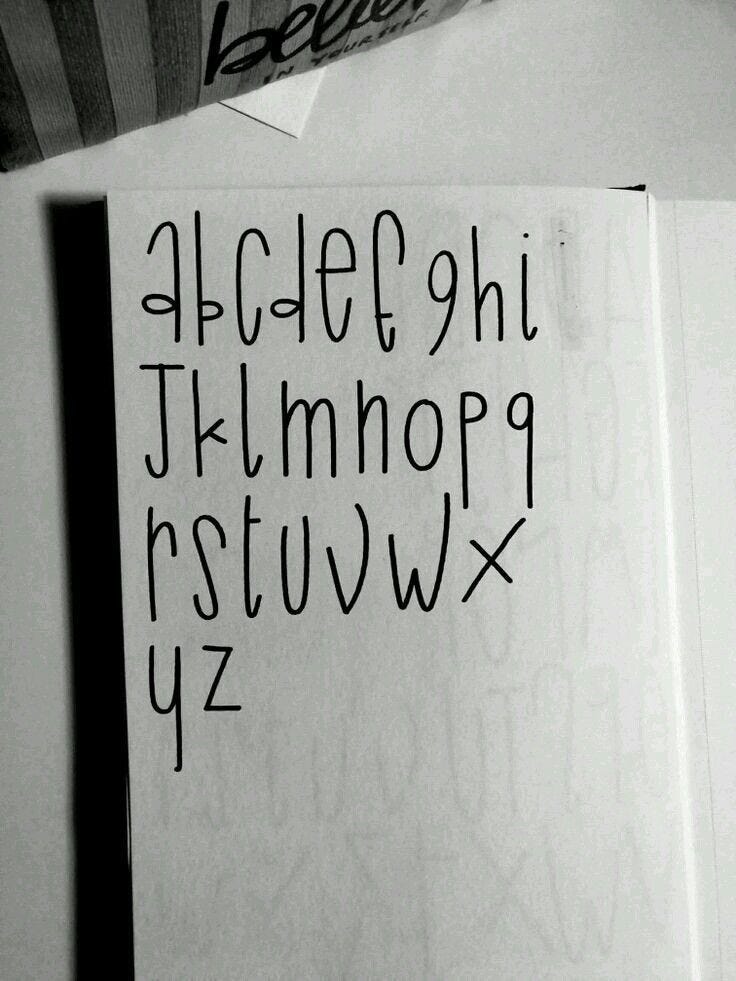 believe
IN YOURSELF
abcdefghi
Jklmnopq
rstuvwx
yz